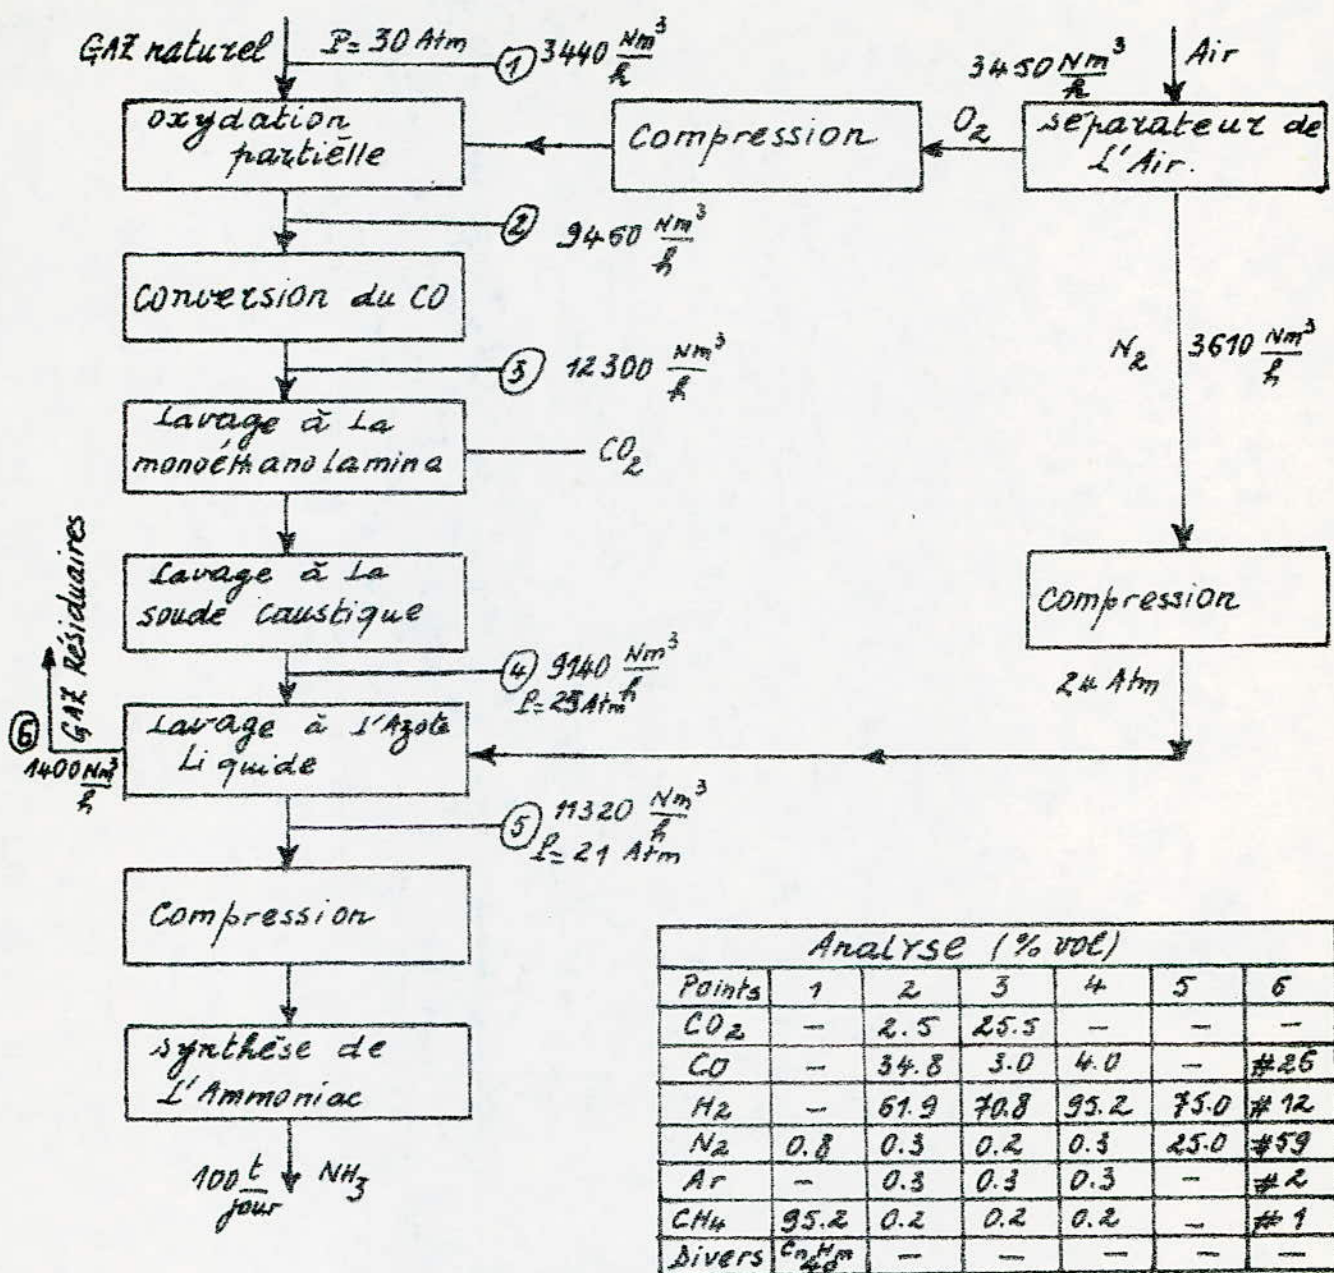 GAZ naturel
P= 30 Atm
① 3440 Nm³/h
Air
3450 Nm³/h
oxydation
partiëlle
Compression
O₂
séparateur de
L'Air.
② 9460 Nm³/h
Conversion du CO
③ 12300 Nm³/h
N₂ 3610 Nm³/h
Lavage à La
monoéthanolamina
CO₂
Lavage à La
soude caustique
Compression
GAZ Résiduaires
④ 9140 Nm³/h
P= 25Atm
24 Atm
⑥
1400 Nm³/h
Lavage à L'Azote
Liquide
⑤ 11320 Nm³/h
P= 21 Atm
Compression
synthèse de
L'Ammoniac
100 t/jour NH₃
Analyse (% vol)
Points 1 2 3 4 5 6
CO₂ — 2.5 25.5 — — —
CO — 34.8 3.0 4.0 — #26
H₂ — 61.9 70.8 95.2 75.0 #12
N₂ 0.8 0.3 0.2 0.3 25.0 #59
Ar — 0.3 0.3 0.3 — #2
CH₄ 95.2 0.2 0.2 0.2 — #1
Divers CnHm 4.0 — — — — —